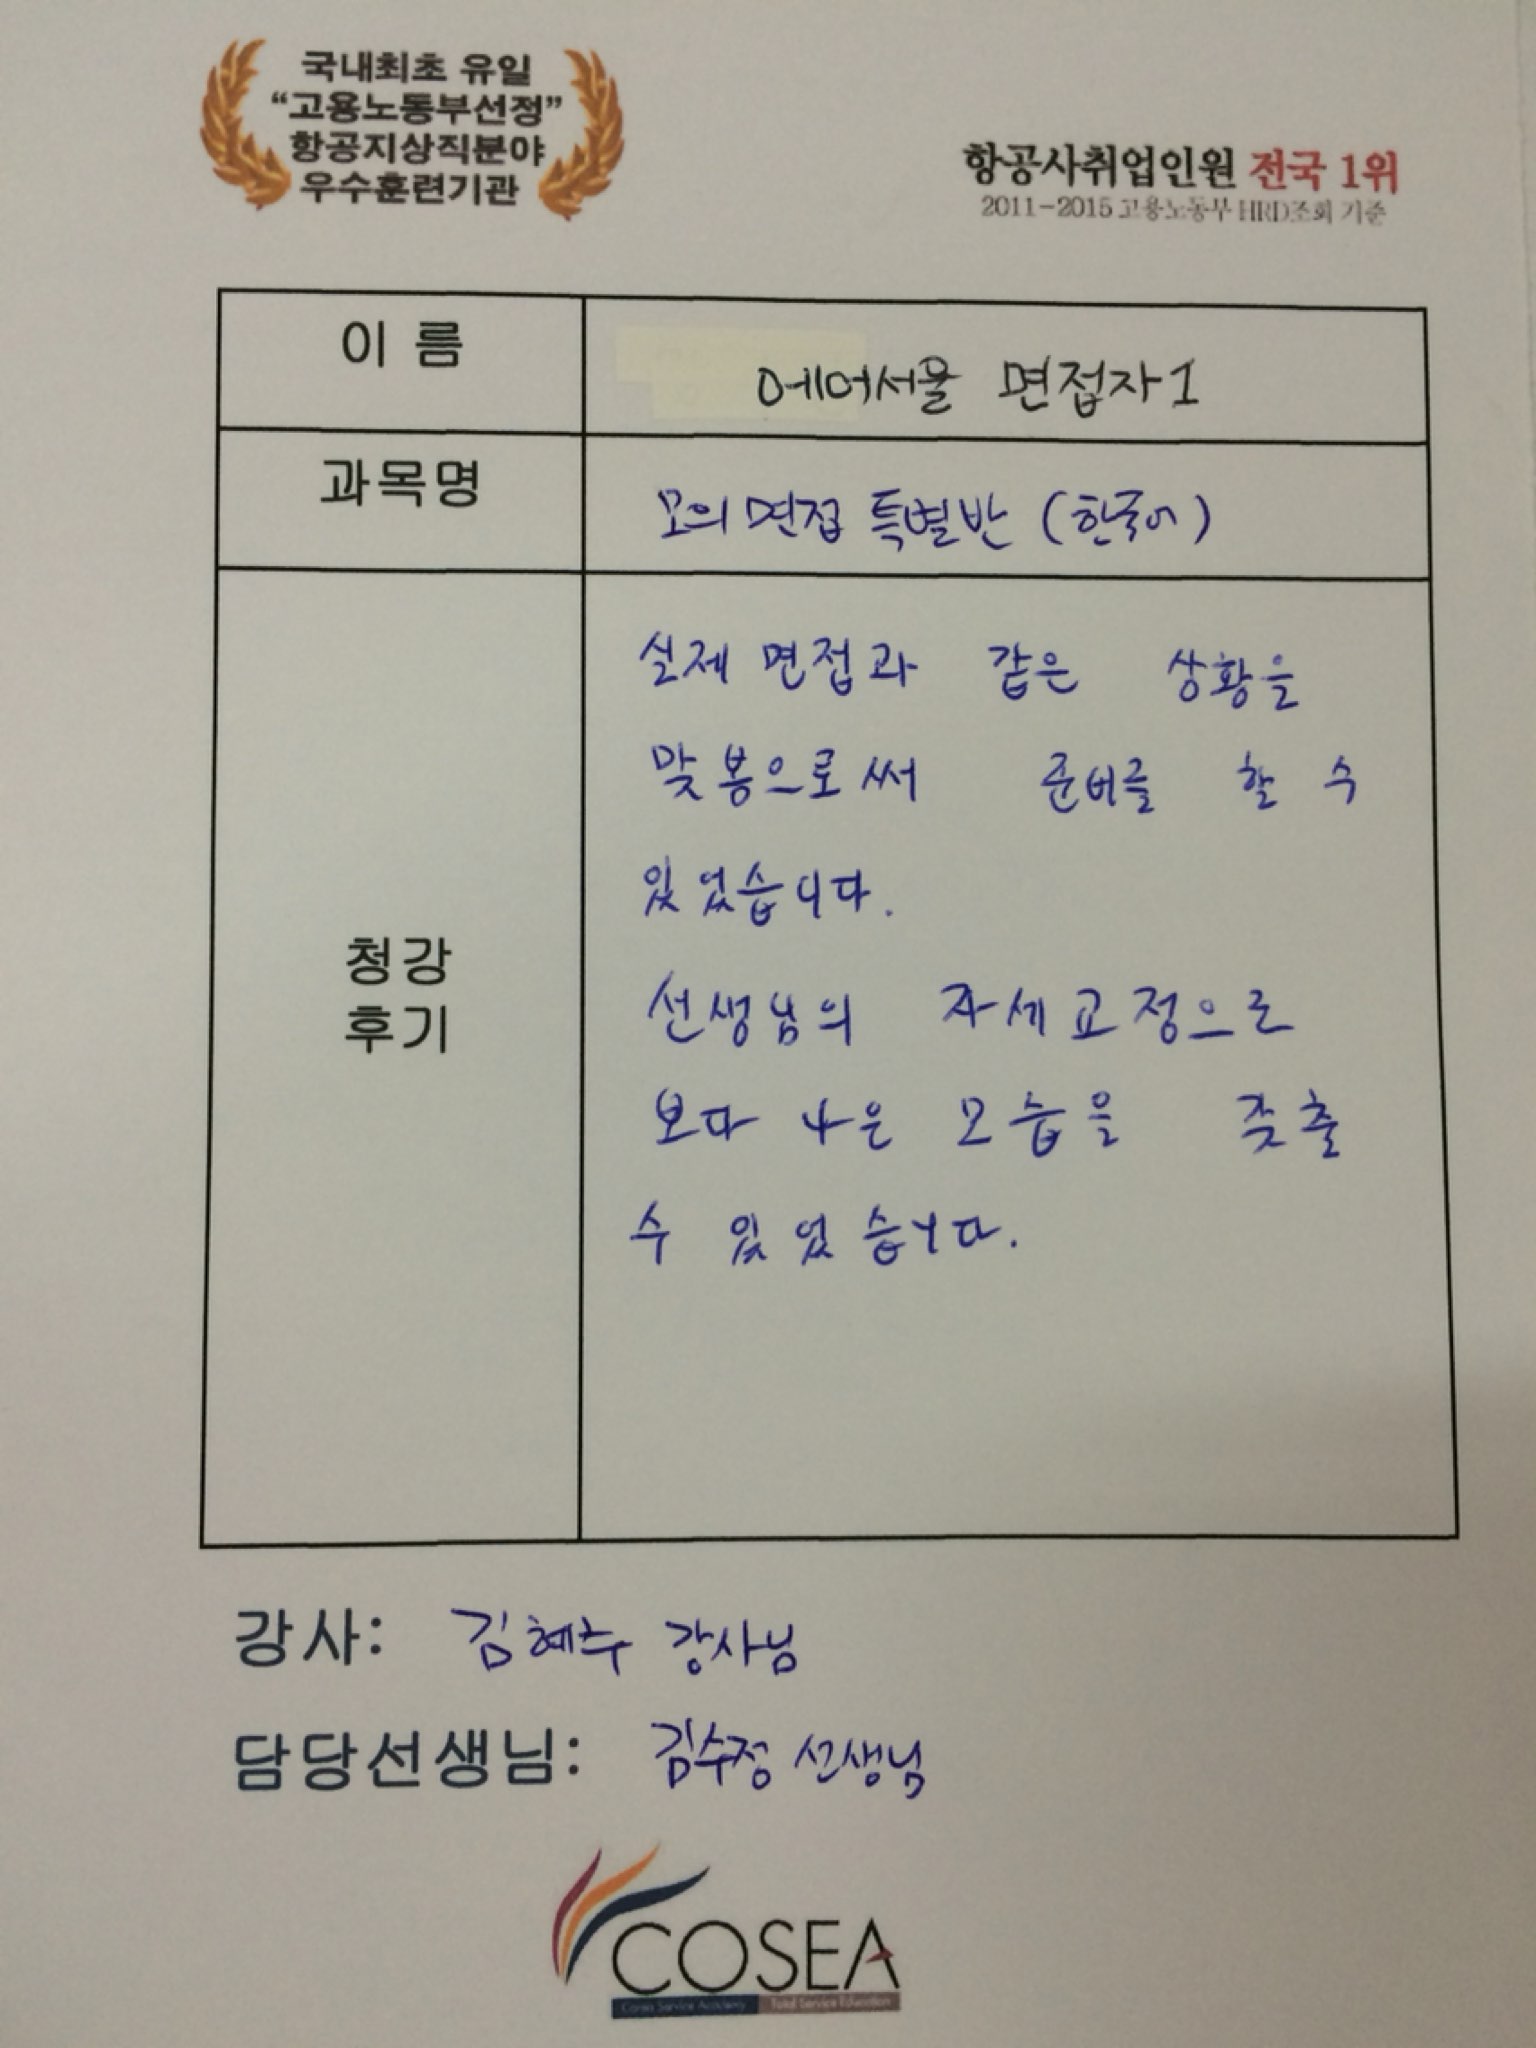 국내최초 유일
“고용노동부선정”
항공지상직분야
우수훈련기관
항공사취업인원 전국 1위
2011-2015 고용노동부 HRD조회 기준
이 름
에어서울 면접자1
과목명
모의면접 특별반 (한국어)
청강
후기
실제 면접과 같은 상황을
맞봄으로써 준비를 할 수
있었습니다.
선생님의 자세교정으로
보다 나은 모습을 갖출
수 있었습니다.
강사: 김혜수 강사님
담당선생님: 김수정 선생님
COSEA
Corea Service Academy Total Service Education